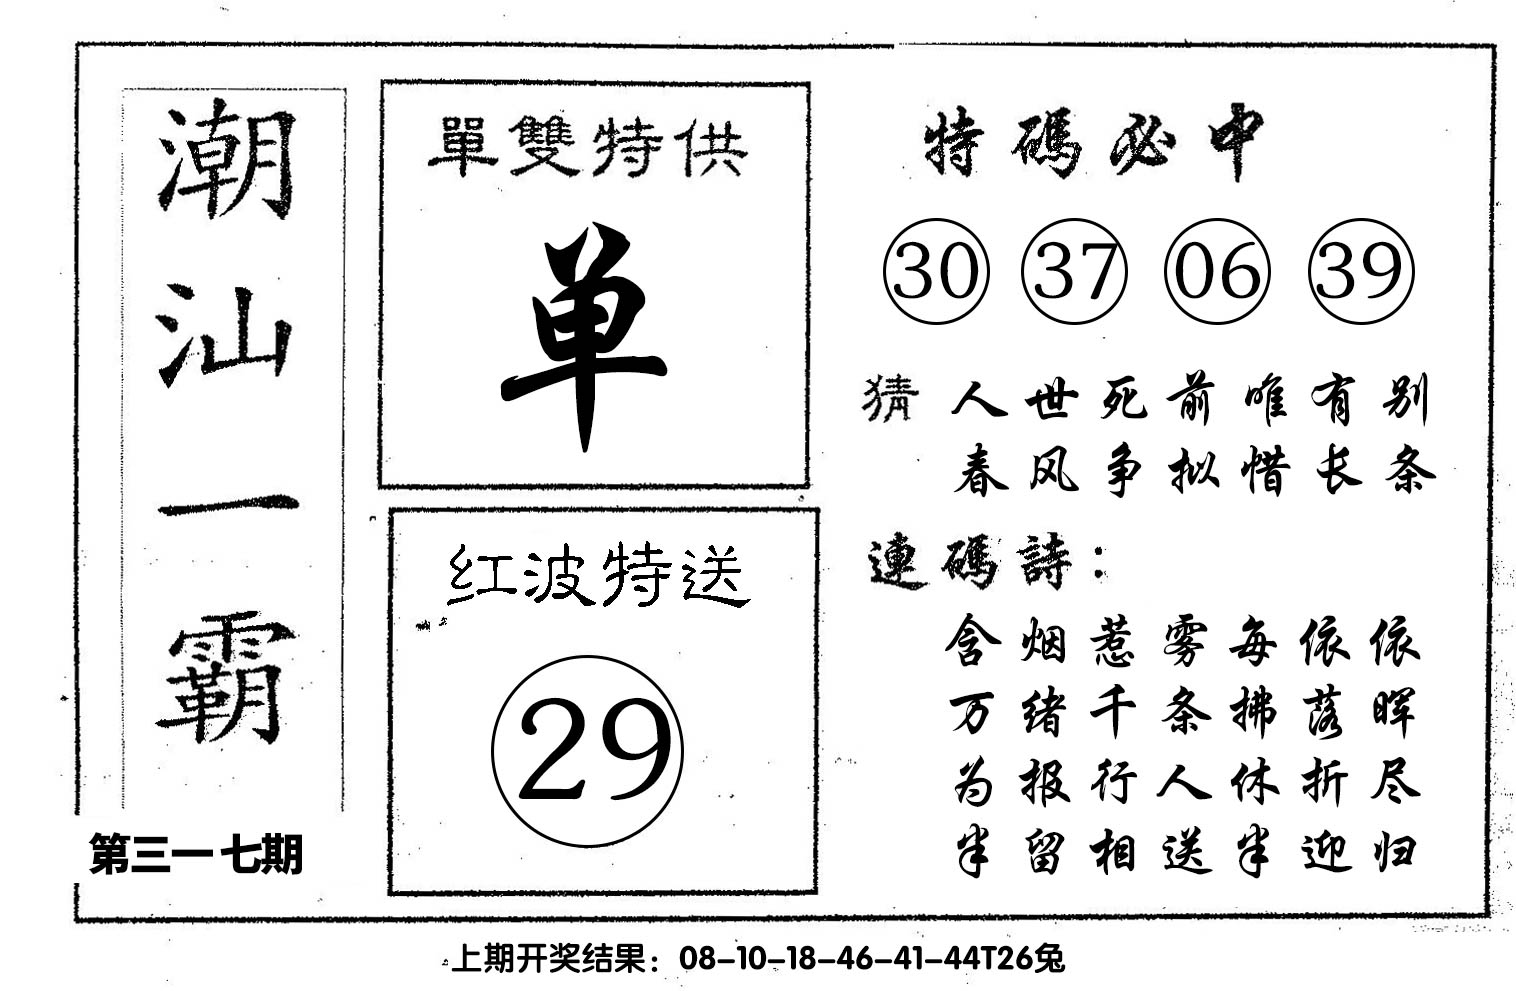 潮汕一霸
第三一七期
單雙特供
单
红波特送
29
特碼必中
30 37 06 39
猜 人世死前唯有别
春风争拟惜长条
連碼詩：
含烟惹雾每依依
万绪千条拂落晖
为报行人休折尽
半留相送半迎归
上期开奖结果：08-10-18-46-41-44T26兔